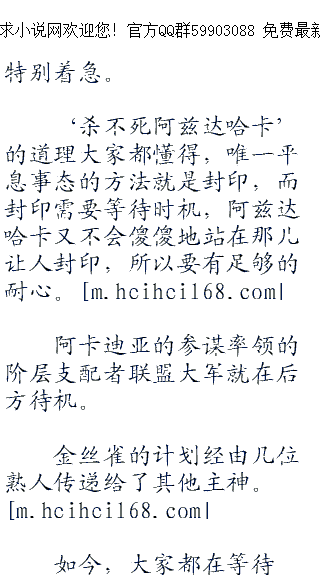 求小说网欢迎您! 官方QQ群59903088 免费最新
特别着急。
‘杀不死阿兹达哈卡’
的道理大家都懂得，唯一平
息事态的方法就是封印，而
封印需要等待时机，阿兹达
哈卡又不会傻傻地站在那儿
让人封印，所以要有足够的
耐心。[m.hcihci168.com|
阿卡迪亚的参谋率领的
阶层支配者联盟大军就在后
方待机。
金丝雀的计划经由几位
熟人传递给了其他主神。
[m.hcihci168.com|
如今，大家都在等待